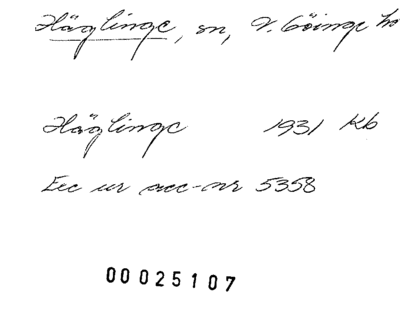 Häglinge, sn, V. Göinge hd
Häglinge 1931 Kb
Exc ur acc-nr 5358
00025107